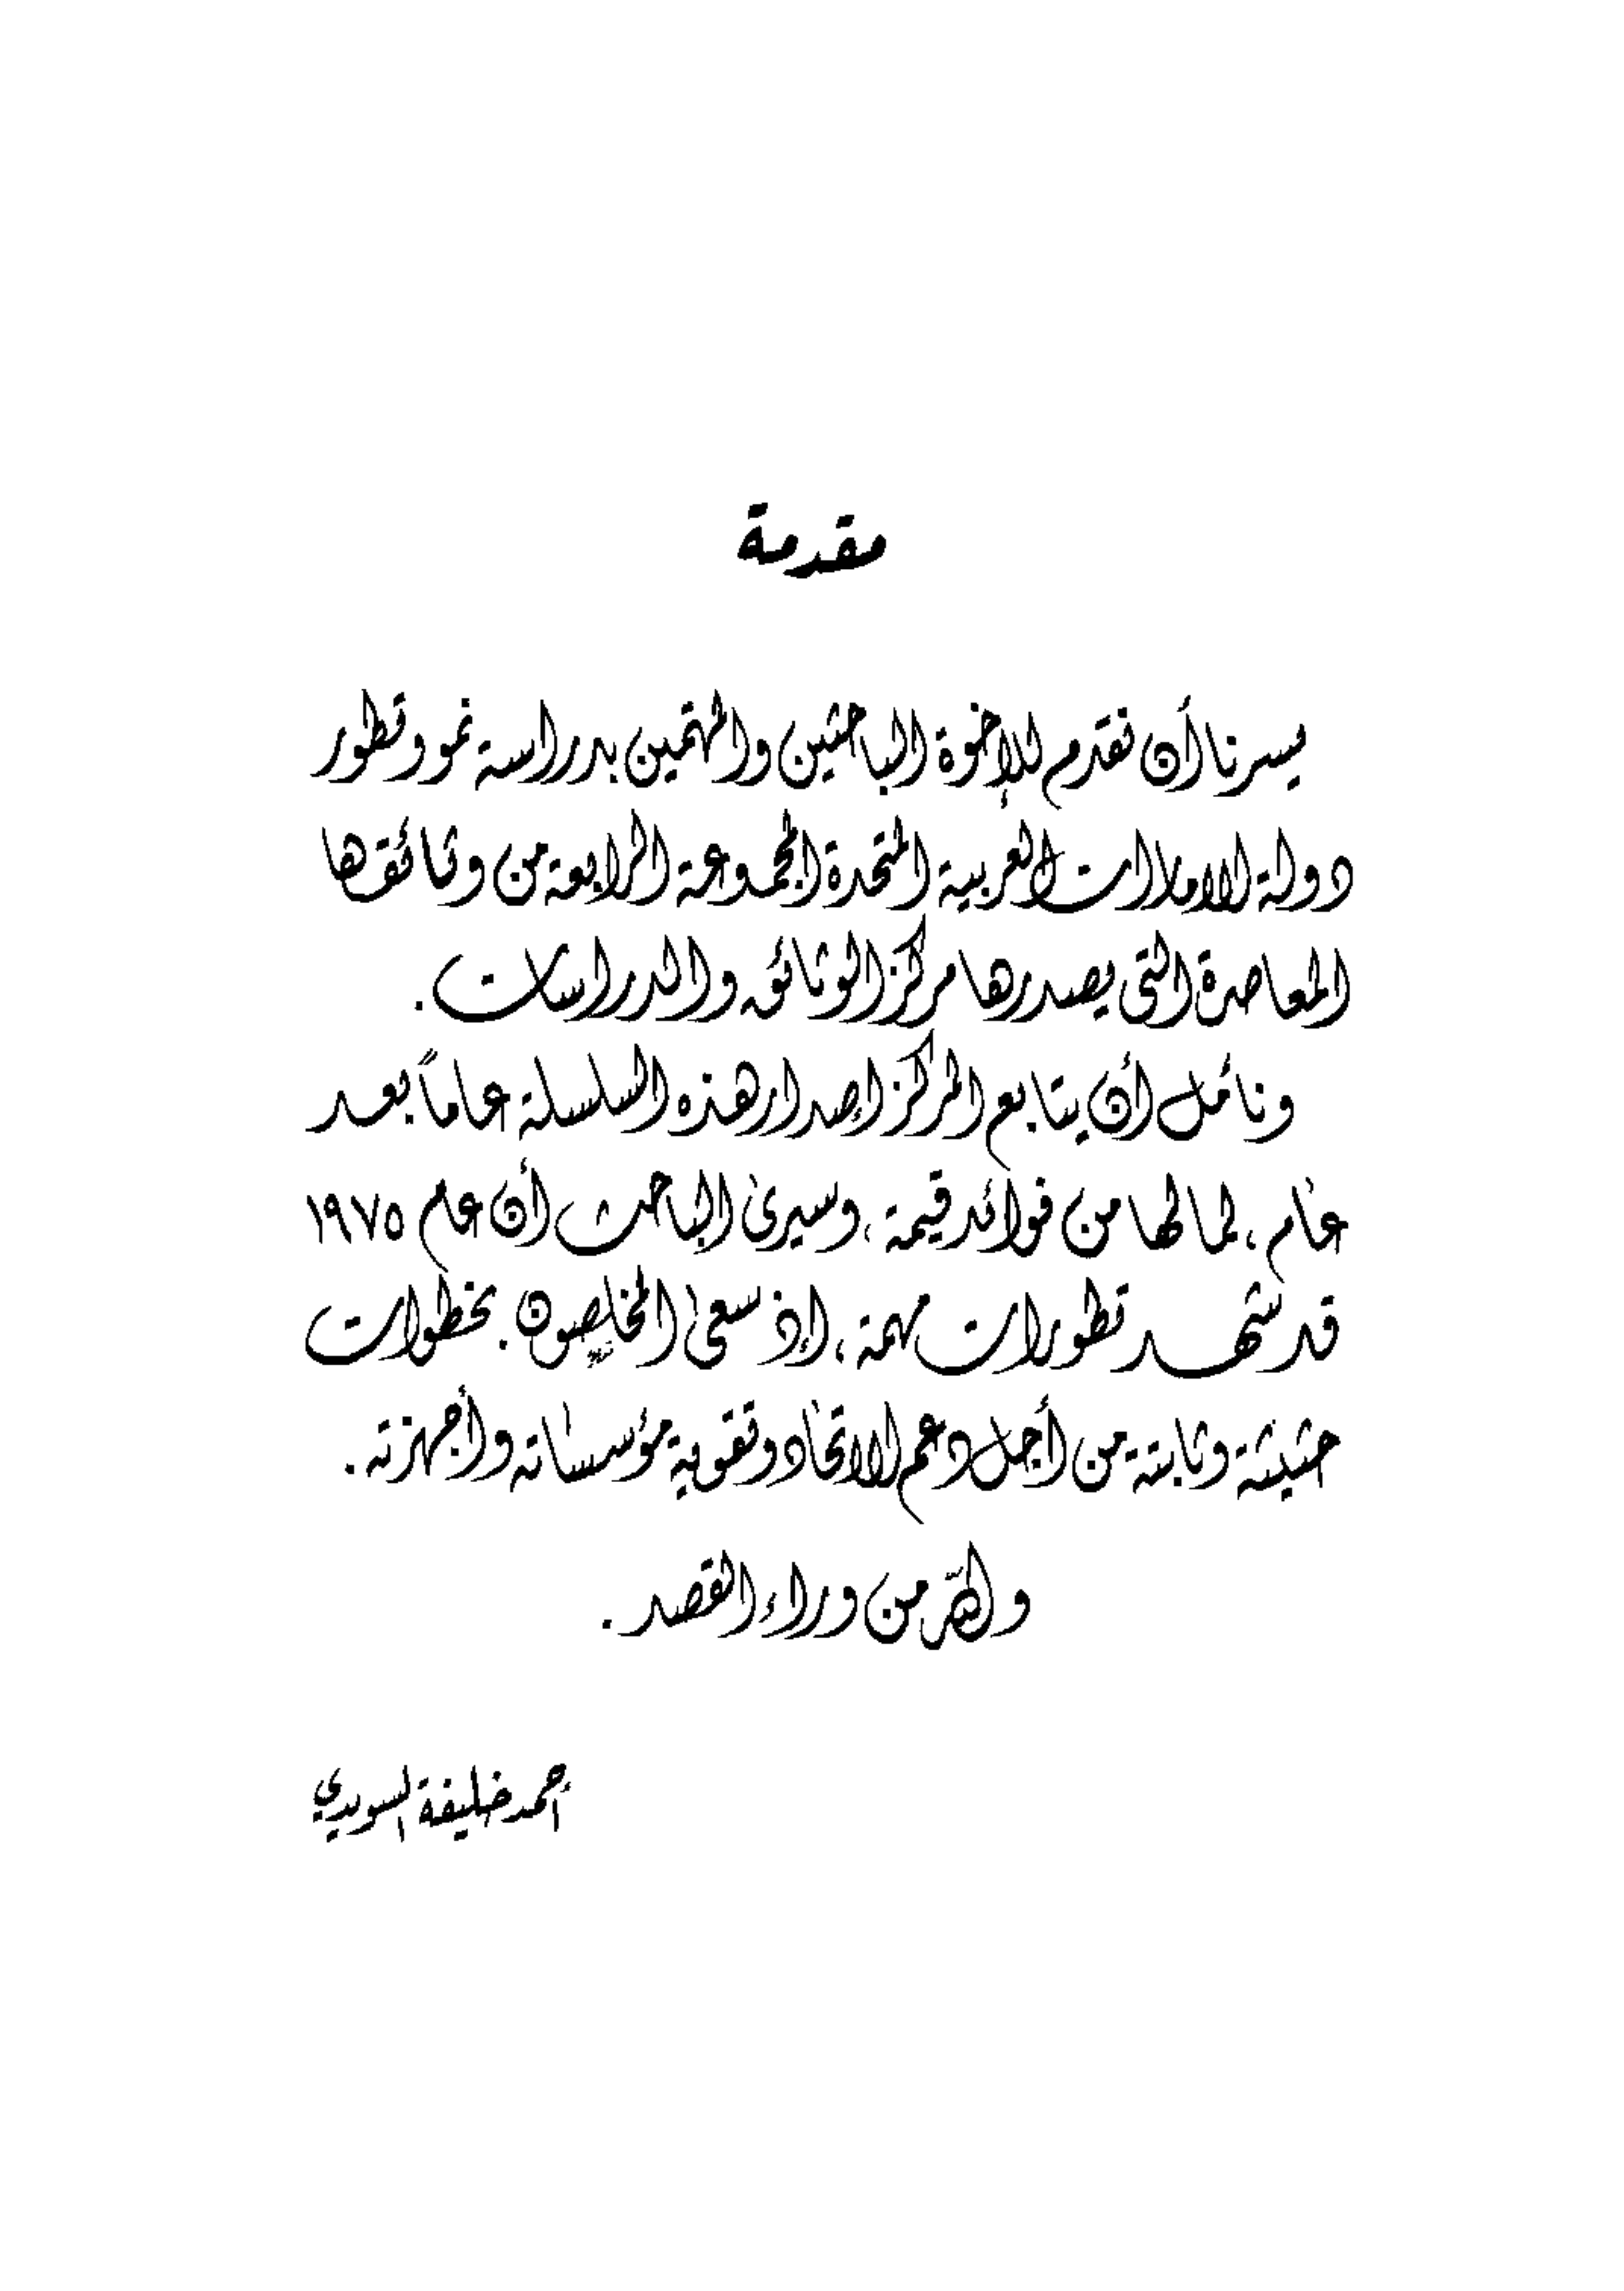 مقدمة
يسرنا أن نقدم للإخوة الباحثين والمهتمين بدراسة نمو وتطور
دولة الامارات العربية المتحدة المجموعة الرابعة من وثائقها
المعاصرة التي يصدرها مركز الوثائق والدراسات .
ونأمل أن يتابع المركز إصدار هذه السلسلة عاماً بعد
عام ، لما لها من فوائد قيمة ، وسيرى الباحث أن عام ١٩٧٥
قد شهد تطورات مهمة ، إذ سعى المخلصون بخطوات
حثيثة وثابتة من أجل دعم الاتحاد وتقوية مؤسساته وأجهزته .
والله من وراء القصد .
أحمد خليفة السويدي